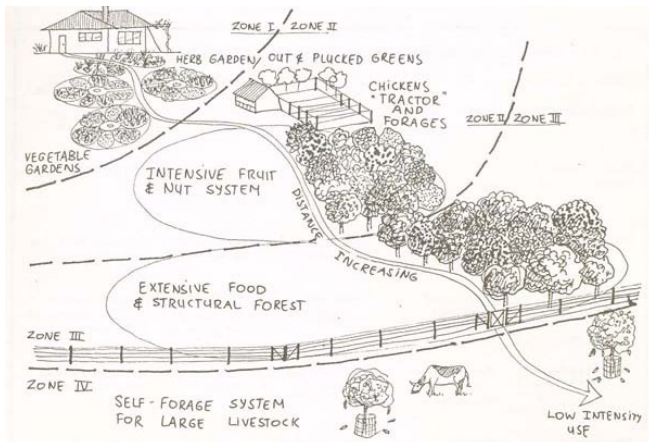 ZONE I ZONE II
HERB GARDEN/ OUT & PLUCKED GREENS
CHICKENS
"TRACTOR"
AND
FORAGES
ZONE II ZONE III
VEGETABLE
GARDENS
INTENSIVE FRUIT
& NUT SYSTEM
DISTANCE
INCREASING
EXTENSIVE FOOD
& STRUCTURAL FOREST
ZONE III
ZONE IV
SELF-FORAGE SYSTEM
FOR LARGE LIVESTOCK
LOW INTENSITY
USE